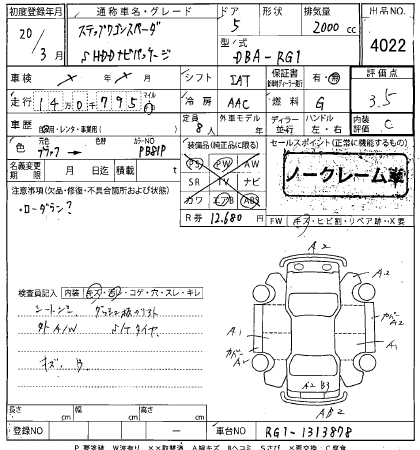 初度登録年月 通称車名・グレード ドア 形状 排気量 出品NO.
20/3月 ステップワゴンスパーダ 5 2000cc
SHDDナビパッケージ 型式 DBA-RG1 4022
車検 シフト IAT 保証書 有・無 評価点
走行 14万0千795マイルkm 冷房 AAC 燃料 G 3.5
車歴 自家用・レンタ・事業用( ) 定員 8人 外車モデル 年 ディーラー 並行 ハンドル 左・右 内装評価 C
色 元色 ブラック → 色替 カラーNO PB81P 装備品(純正品に限る) セールスポイント(正常に機能するもの)
名義変更期限 月 日迄 積載 t PS PW AW ノークレーム車
注意事項(欠品・修復・不具合箇所および状態) SR TV ナビ
・ローダウン? カワ エアB ABS
R券 12,680円 FW キズ・ヒビ割・リペア跡・X要
A2
検査員記入 内装 キズ・汚レ・コゲ・穴・スレ・キレ A2
シートシミ
外A/W タイヤ A1 A1
キズ、B
A2 B3
長さ cm 幅 cm 高さ cm
登録NO 車台NO RG1-1313878
P要塗装 W波有り ××取替済 A線キズ Bヘコミ Sさび ×要交換 C腐食